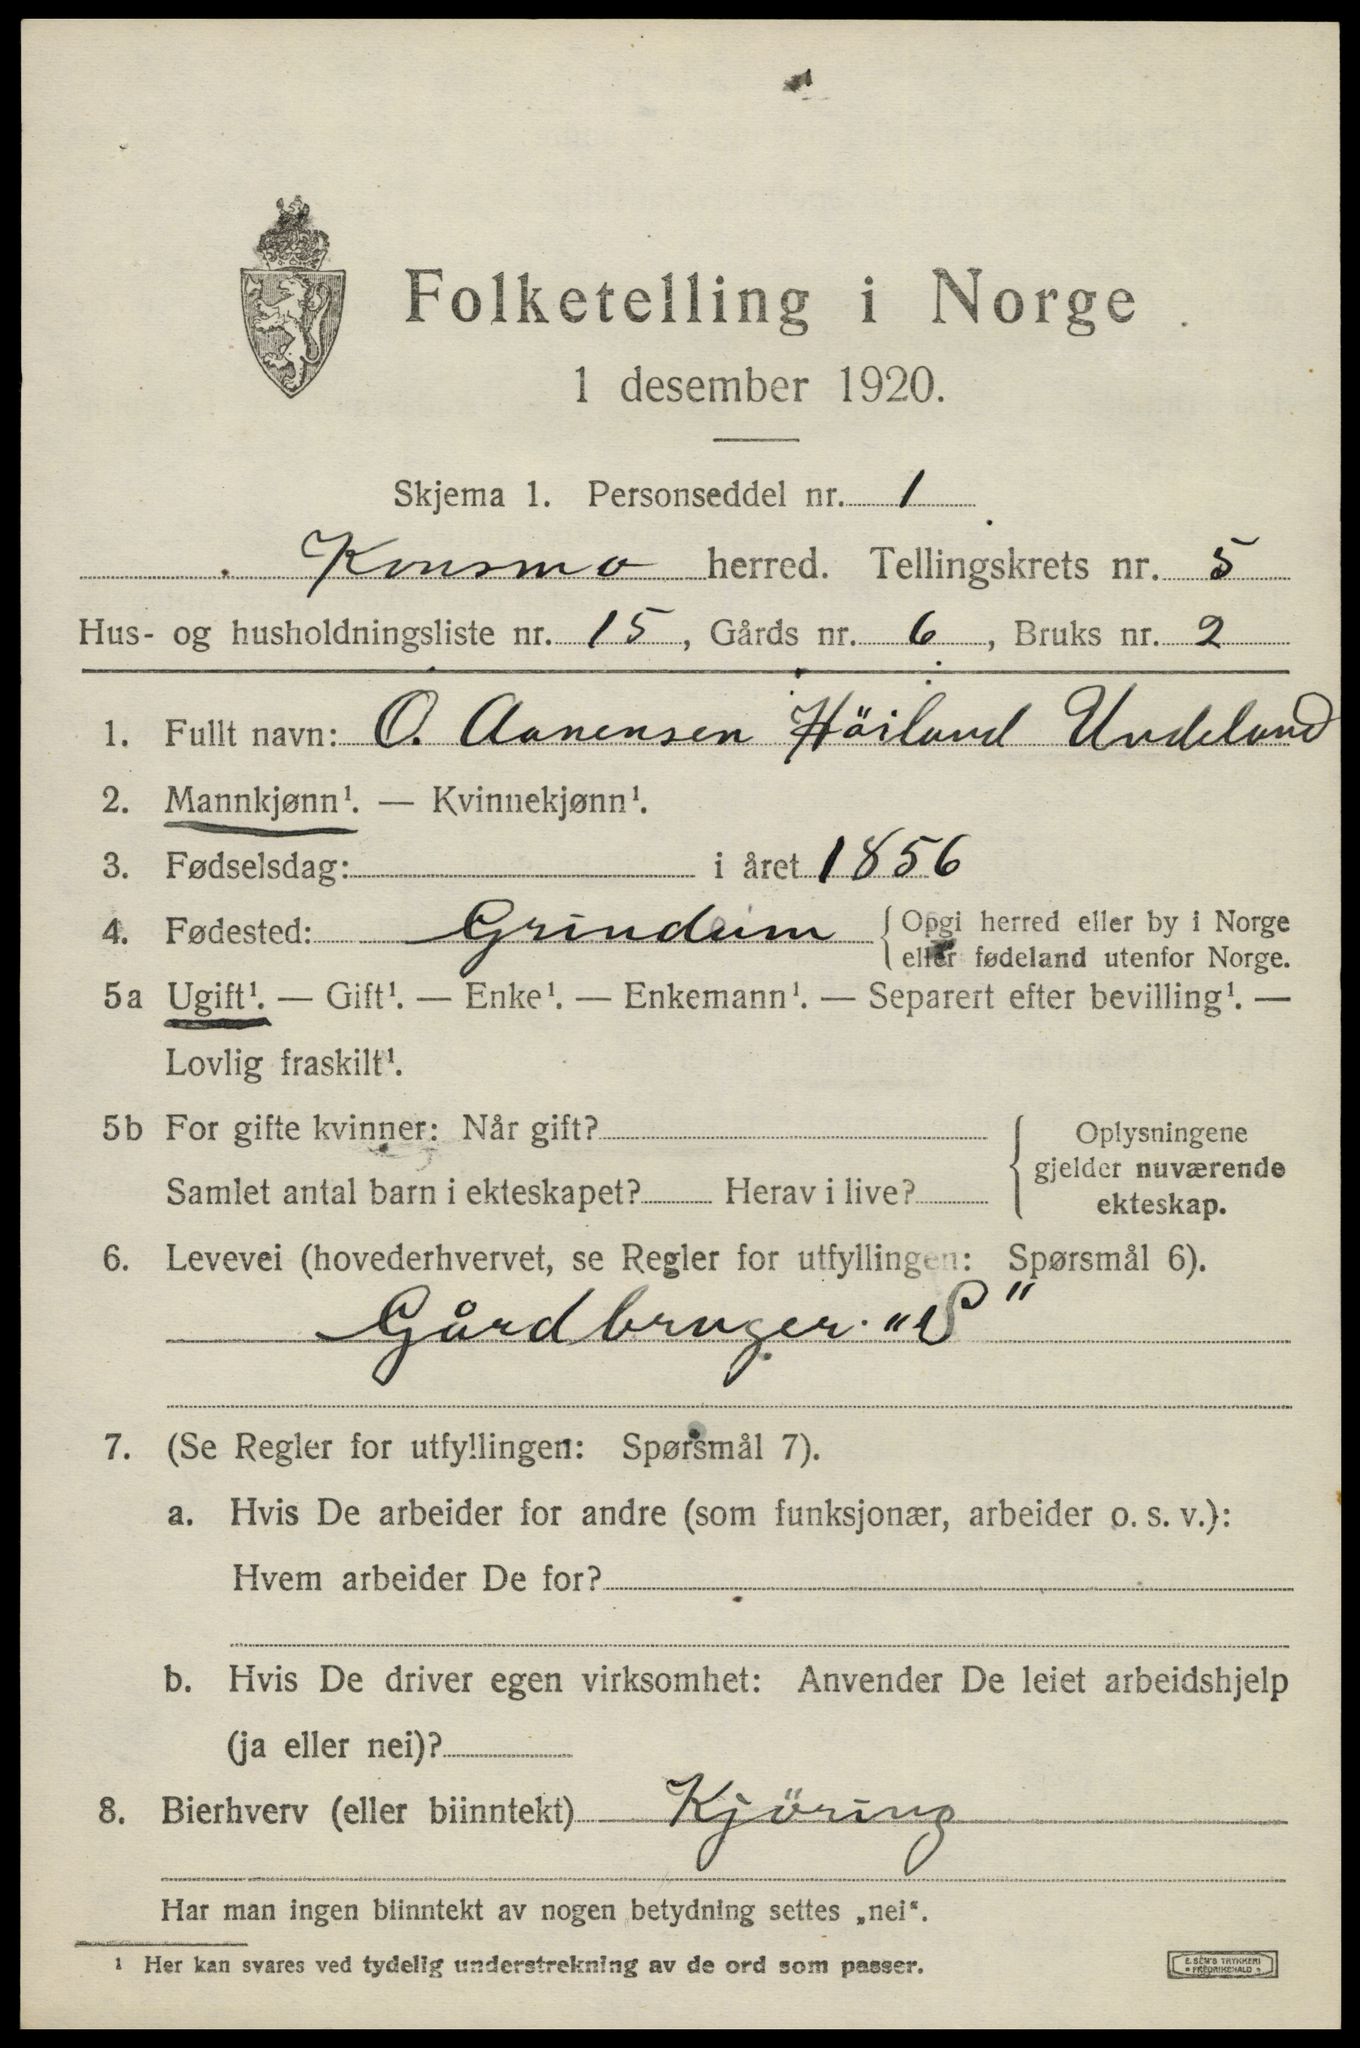 Folketelling i Norge
1 desember 1920.
Skjema 1. Personseddel nr. 1
Konsmo herred. Tellingskrets nr. 5
Hus- og husholdningsliste nr. 15, Gårds nr. 6, Bruks nr. 2
1. Fullt navn: O. Aanensen Höiland Undeland
2. Mannkjønn¹. — Kvinnekjønn¹.
3. Fødselsdag: i året 1856
4. Fødested: Grindum { Opgi herred eller by i Norge
eller fødeland utenfor Norge.
5a Ugift¹. — Gift¹. — Enke¹. — Enkemann¹. — Separert efter bevilling¹. —
Lovlig fraskilt¹.
5b For gifte kvinner: Når gift?
Samlet antal barn i ekteskapet? Herav i live?
Oplysningene
gjelder nuværende
ekteskap.
6. Levevei (hovederhvervet, se Regler for utfyllingen: Spørsmål 6).
Gårdbruger. „S"
7. (Se Regler for utfyllingen: Spørsmål 7).
a. Hvis De arbeider for andre (som funksjonær, arbeider o. s. v.):
Hvem arbeider De for?
b. Hvis De driver egen virksomhet: Anvender De leiet arbeidshjelp
(ja eller nei)?
8. Bierhverv (eller biinntekt) Kjöring
Har man ingen biinntekt av nogen betydning settes „nei“.
¹ Her kan svares ved tydelig understrekning av de ord som passer.
E. SEM'S TRYKKERI
FREDRIKSHALD